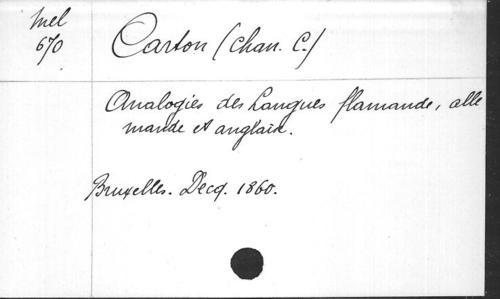 Mel
670
Carton (Chan. C.)
Analogies des Langues flamande, alle
mande et anglaise.
Bruxelles. Decq. 1860.